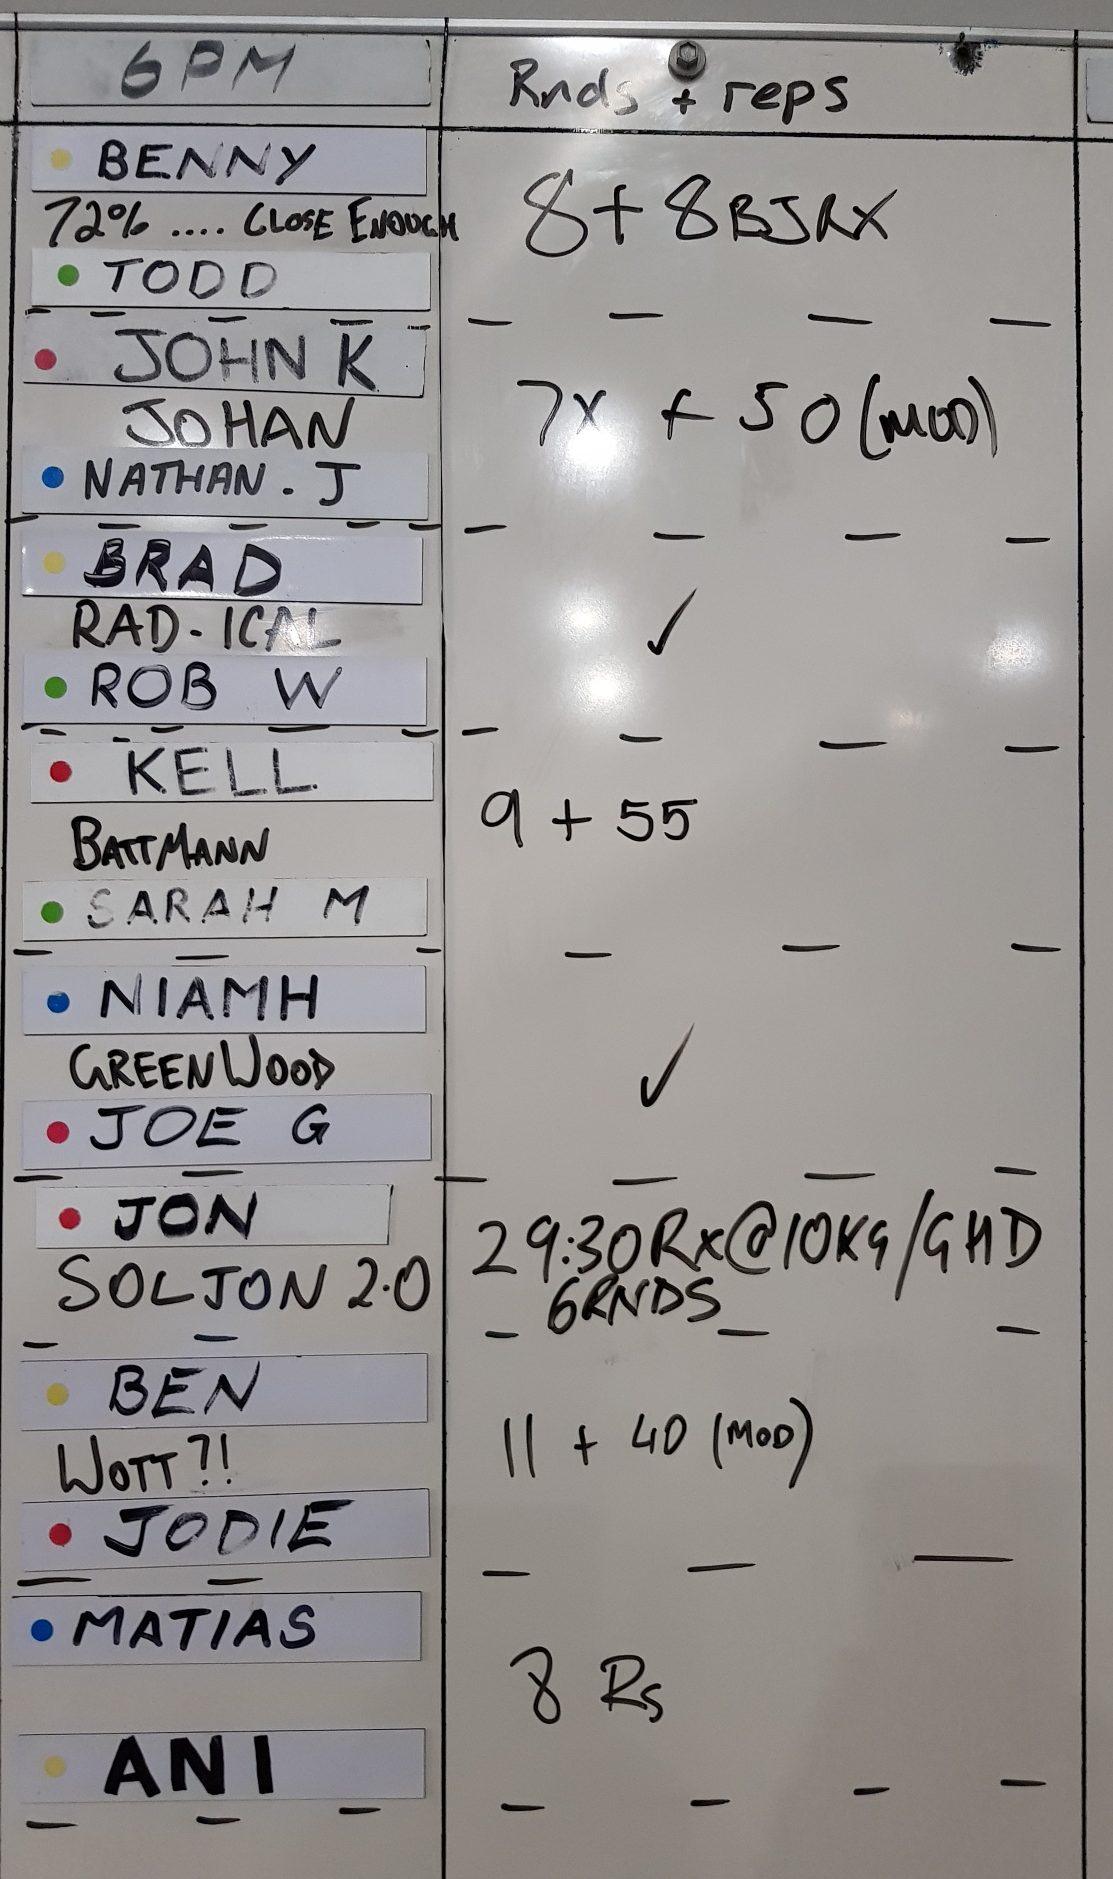 6PM
Rnds + reps
BENNY
72% .... CLOSE ENOUGH
8+8BJRX
TODD
JOHN K
JOHAN
7x + 50 (MOD)
NATHAN. J
BRAD
RAD-ICAL
✓
ROB W
KELL
9 + 55
BATTMANN
SARAH M
NIAMH
GREENWOOD
✓
JOE G
JON
29:30Rx@10KG/GHD
SOLJON 2.0
6RNDS
BEN
11 + 40 (MOD)
WOTT?!
JODIE
MATIAS
8 Rs
ANI